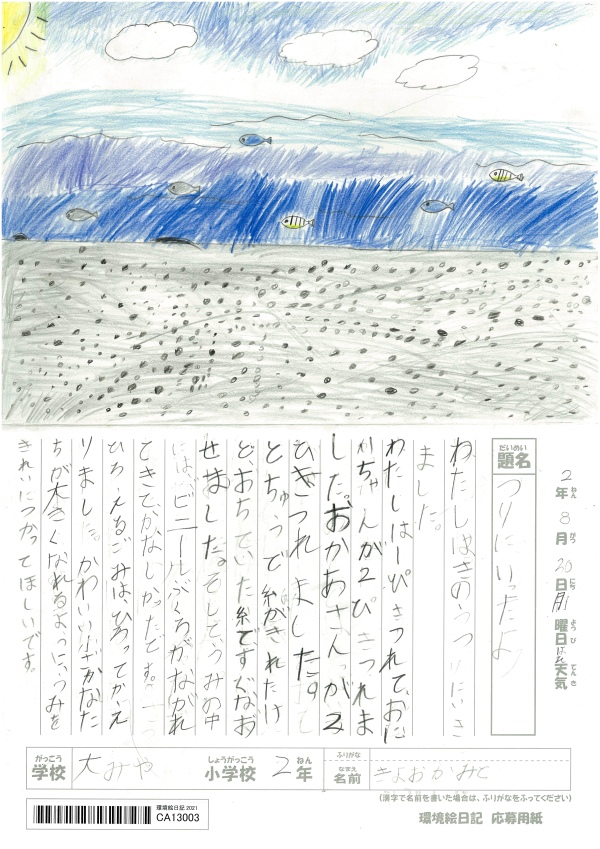 2年ねん 8月がつ 20日にち 月曜日ようび はれ天気てんき
だいめい
題名
つりにいったよ
わたしはきのうつりにいき
ました。
わたしは一ぴきつれて、おに
いちゃんが2ひきつれま
した。おかあさんが2
ひきつれました。
とちゅうで糸がきれたけ
ど、おちていた糸ですぐなお
せました。そしてうみの中
には、ビニールぶくろがながれ
てきて、かなしかったです。
ひろえるごみはひろってかえ
りました。かわいい小ざかなた
ちが大きくなれるように、うみを
きれいにつかってほしいです。
がっこう
学校
大みや
しょうがっこう
小学校
2年ねん
ふりがな
なまえ
名前
きよおかみと
(漢字で名前を書いた場合は、ふりがなをふってください)
環境絵日記 2021
CA13003
環境絵日記 応募用紙